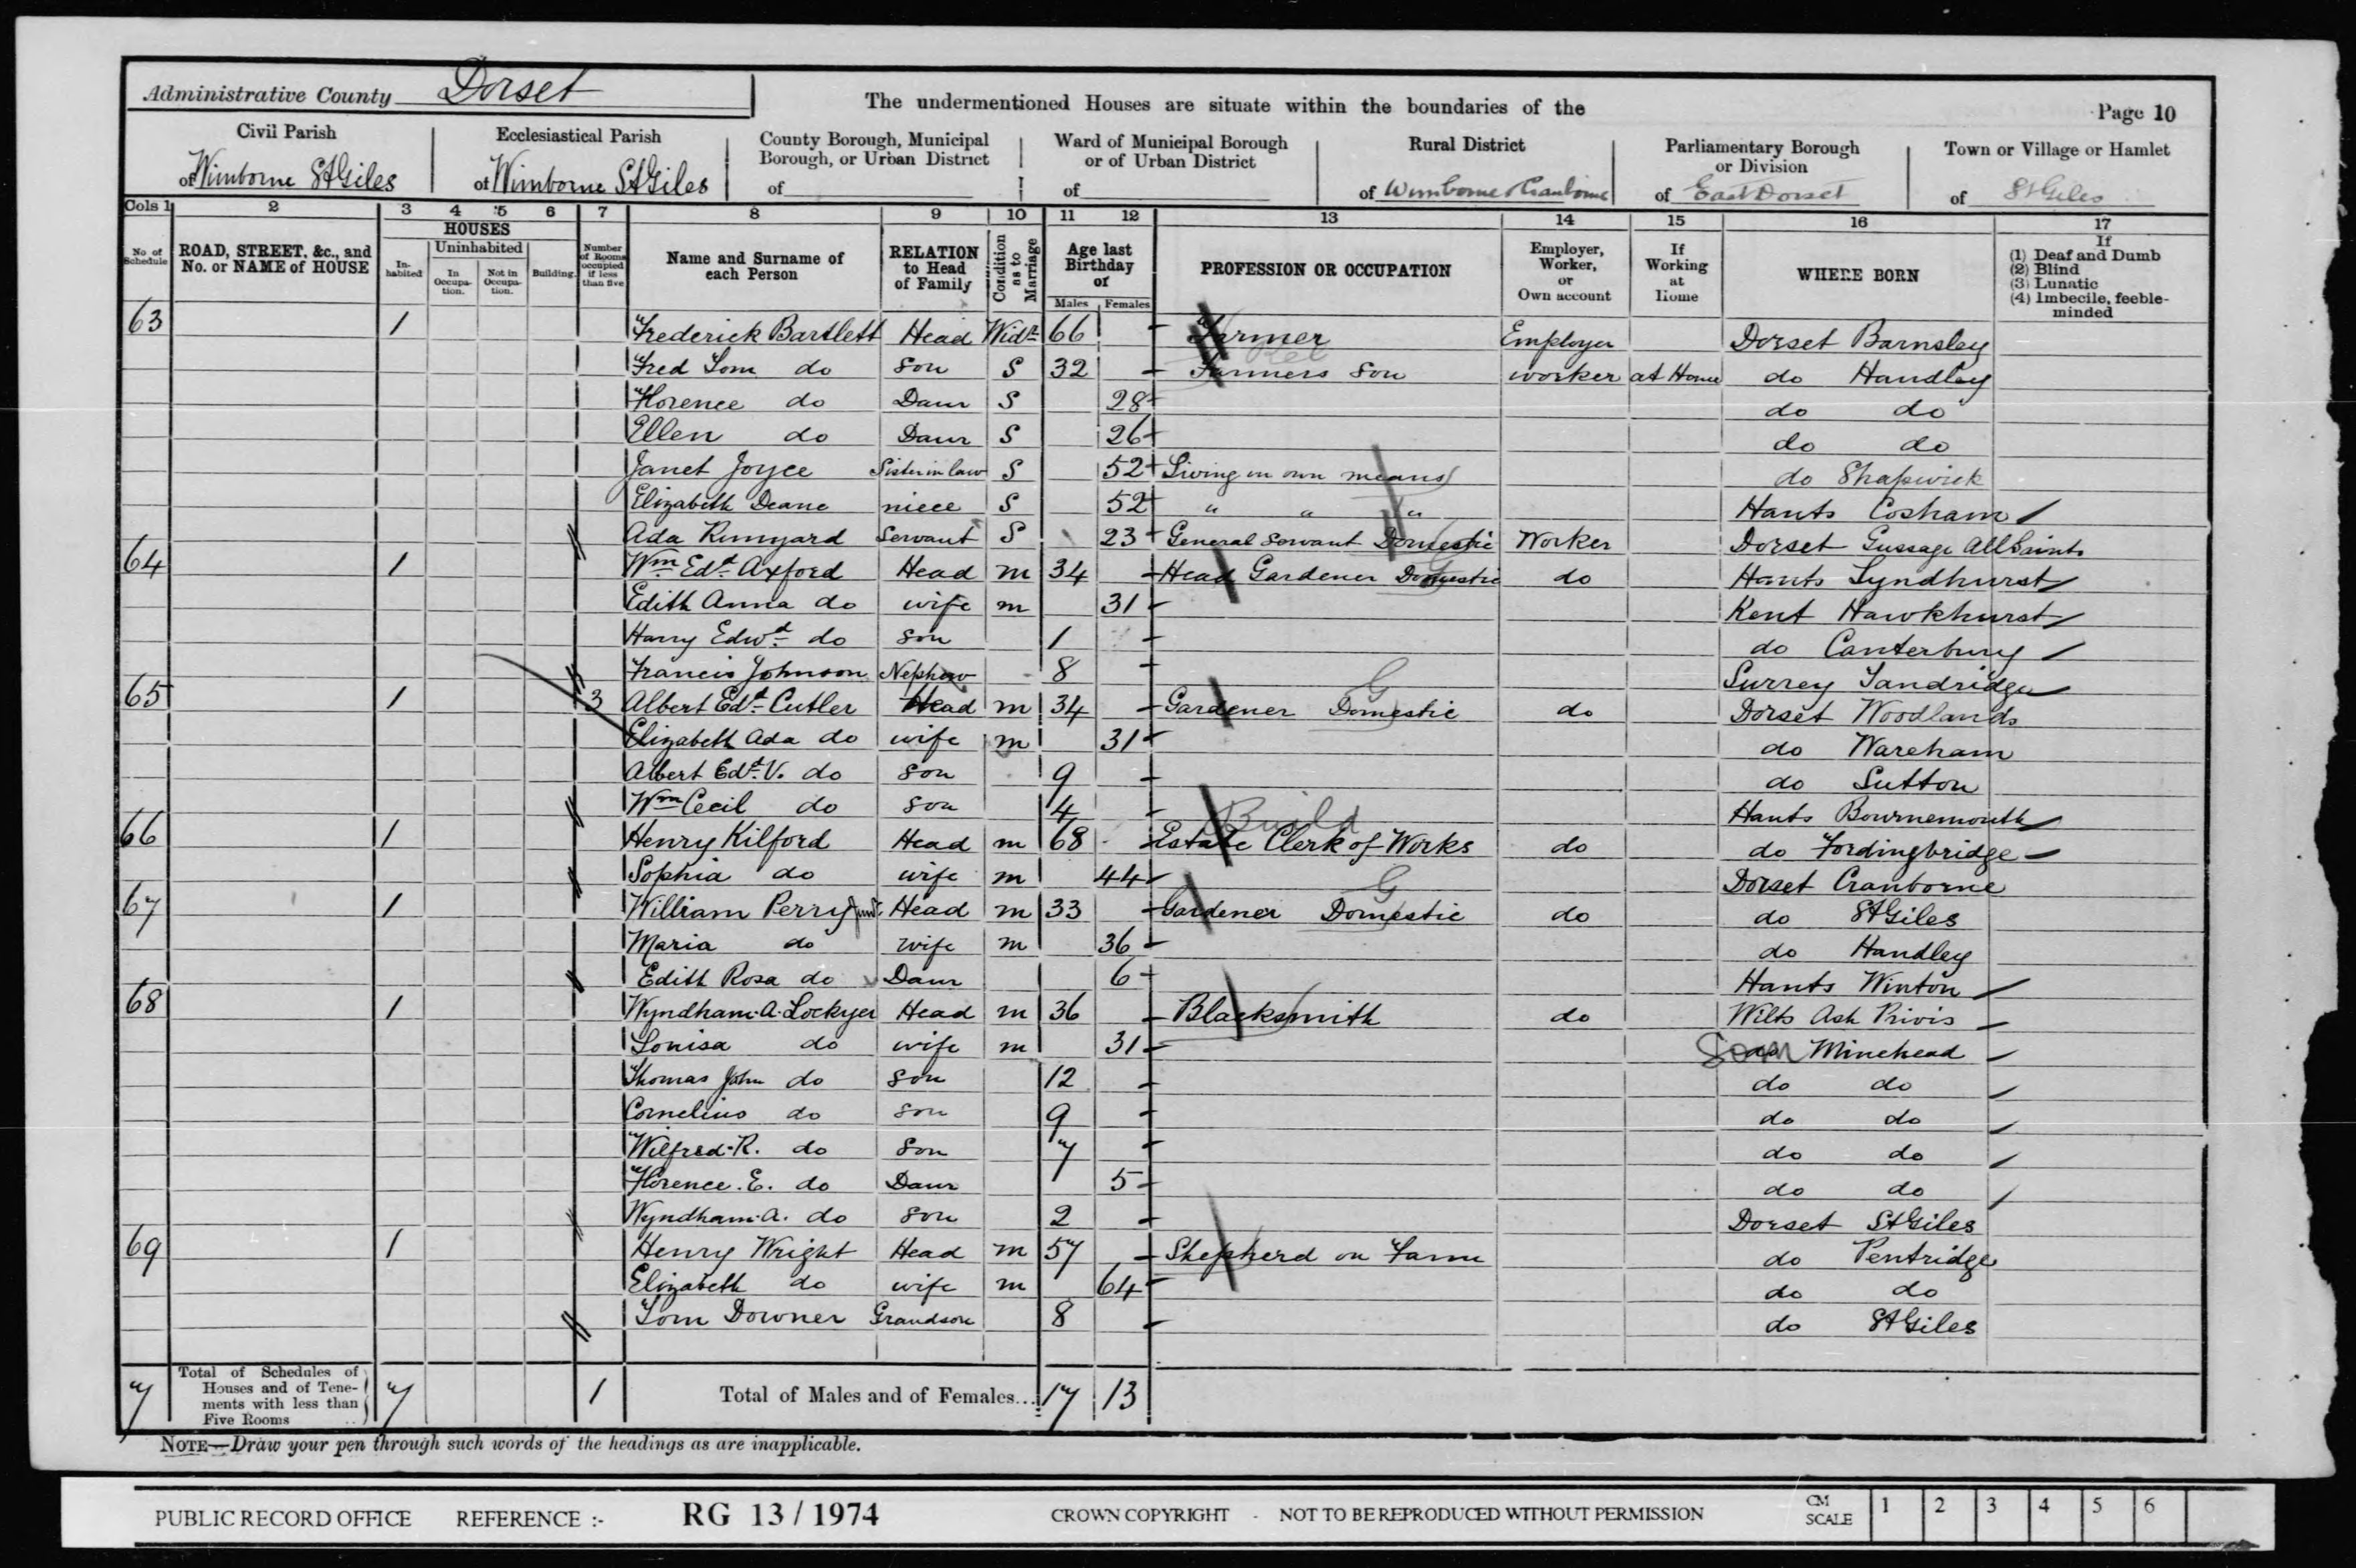 Administrative County Dorset
The undermentioned Houses are situate within the boundaries of the
Page 10
Civil Parish
of Wimborne St Giles
Ecclesiastical Parish
of Wimborne St Giles
County Borough, Municipal
Borough, or Urban District
of
Ward of Municipal Borough
or of Urban District
of
Rural District
of Wimborne & Cranborne
Parliamentary Borough
or Division
of East Dorset
Town or Village or Hamlet
of St Giles
Cols 1 2 3 4 5 6 7 8 9 10 11 12 13 14 15 16 17
No of Schedule
ROAD, STREET, &c., and
No. or NAME of HOUSE
HOUSES
In-habited
Uninhabited
In Occupa-tion.
Not in Occupa-tion.
Building
Number of Rooms occupied if less than five
Name and Surname of
each Person
RELATION
to Head
of Family
Condition as to Marriage
Age last
Birthday
of
Males Females
PROFESSION OR OCCUPATION
Employer,
Worker,
or
Own account
If
Working
at
Home
WHERE BORN
If
(1) Deaf and Dumb
(2) Blind
(3) Lunatic
(4) Imbecile, feeble-
minded
63 1 Frederick Bartlett Head Widr 66 Farmer Employer Dorset Barnsley
Fred Tom do Son S 32 Farmers Son worker at Home do Handley
Rel
Florence do Daur S 28 do do
Ellen do Daur S 26 do do
Janet Joyce Sister in law S 52 Living on own means do Shapwick
Elizabeth Deane niece S 52 " " " Hants Cosham
Ada Runyard Servant S 23 General Servant Domestic Worker Dorset Gussage All Saints
64 1 Wm Edd Axford Head m 34 Head Gardener Domestic do Hants Lyndhurst
Edith Anna do wife m 31 Kent Hawkhurst
Harry Edwd do Son 1 do Canterbury
Francis Johnson Nephew 8 Surrey Tandridge
65 1 3 Albert Edd Cutler Head m 34 Gardener Domestic G do Dorset Woodlands
Elizabeth Ada do wife m 31 do Wareham
Albert Edd V. do Son 9 do Sutton
Wm Cecil do Son 4 Hants Bournemouth
Build
66 1 Henry Kilford Head m 68 Estate Clerk of Works do do Fordingbridge
Sophia do wife m 44 Dorset Cranborne
67 1 William Perry Junr Head m 33 Gardener Domestic G do do St Giles
Maria do wife m 36 do Handley
Edith Rosa do Daur 6 Hants Winton
68 1 Wyndham A. Lockyer Head m 36 Blacksmith do Wilts Ash Privis
Louisa do wife m 31 Som Minehead
Thomas John do Son 12 do do
Cornelius do Son 9 do do
Wilfred R. do Son 7 do do
Florence. E. do Daur 5 do do
Wyndham A. do Son 2 Dorset St Giles
69 1 Henry Wright Head m 57 Shepherd on Farm do Pentridge
Elizabeth do wife m 64 do do
Tom Downer Grandson 8 do St Giles
7 Total of Schedules of
Houses and of Tene-
ments with less than
Five Rooms
7 1 Total of Males and of Females... 17 13
NOTE—Draw your pen through such words of the headings as are inapplicable.
PUBLIC RECORD OFFICE REFERENCE :- RG 13 / 1974 CROWN COPYRIGHT - NOT TO BE REPRODUCED WITHOUT PERMISSION CM SCALE 1 2 3 4 5 6